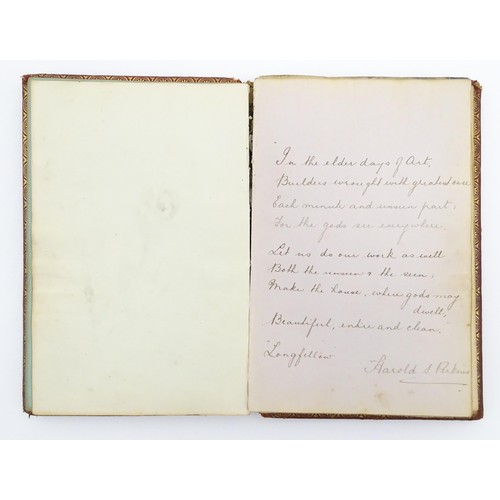 "In the elder days of Art,
Builders wrought with greatest care
Each minute and unseen part;
For the gods see everywhere.
Let us do our work as well
Both the unseen & the seen;
Make the house, where gods may
dwell,
Beautiful, entire and clean."
"Longfellow
Harold S. Perkins